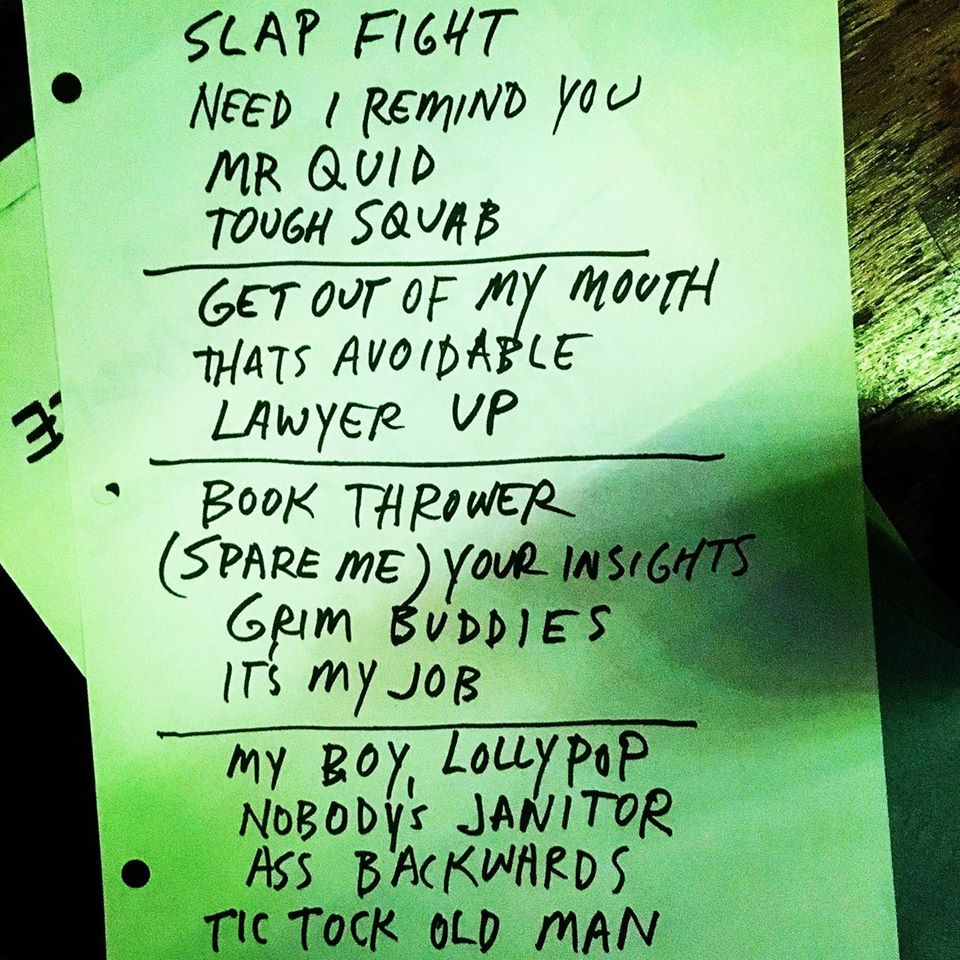 SLAP FIGHT
NEED I REMIND YOU
MR QUID
TOUGH SQUAB
GET OUT OF MY MOUTH
THATS AVOIDABLE
LAWYER UP
BOOK THROWER
(SPARE ME) YOUR INSIGHTS
GRIM BUDDIES
IT'S MY JOB
MY BOY, LOLLYPOP
NOBODY'S JANITOR
ASS BACKWARDS
TIC TOCK OLD MAN